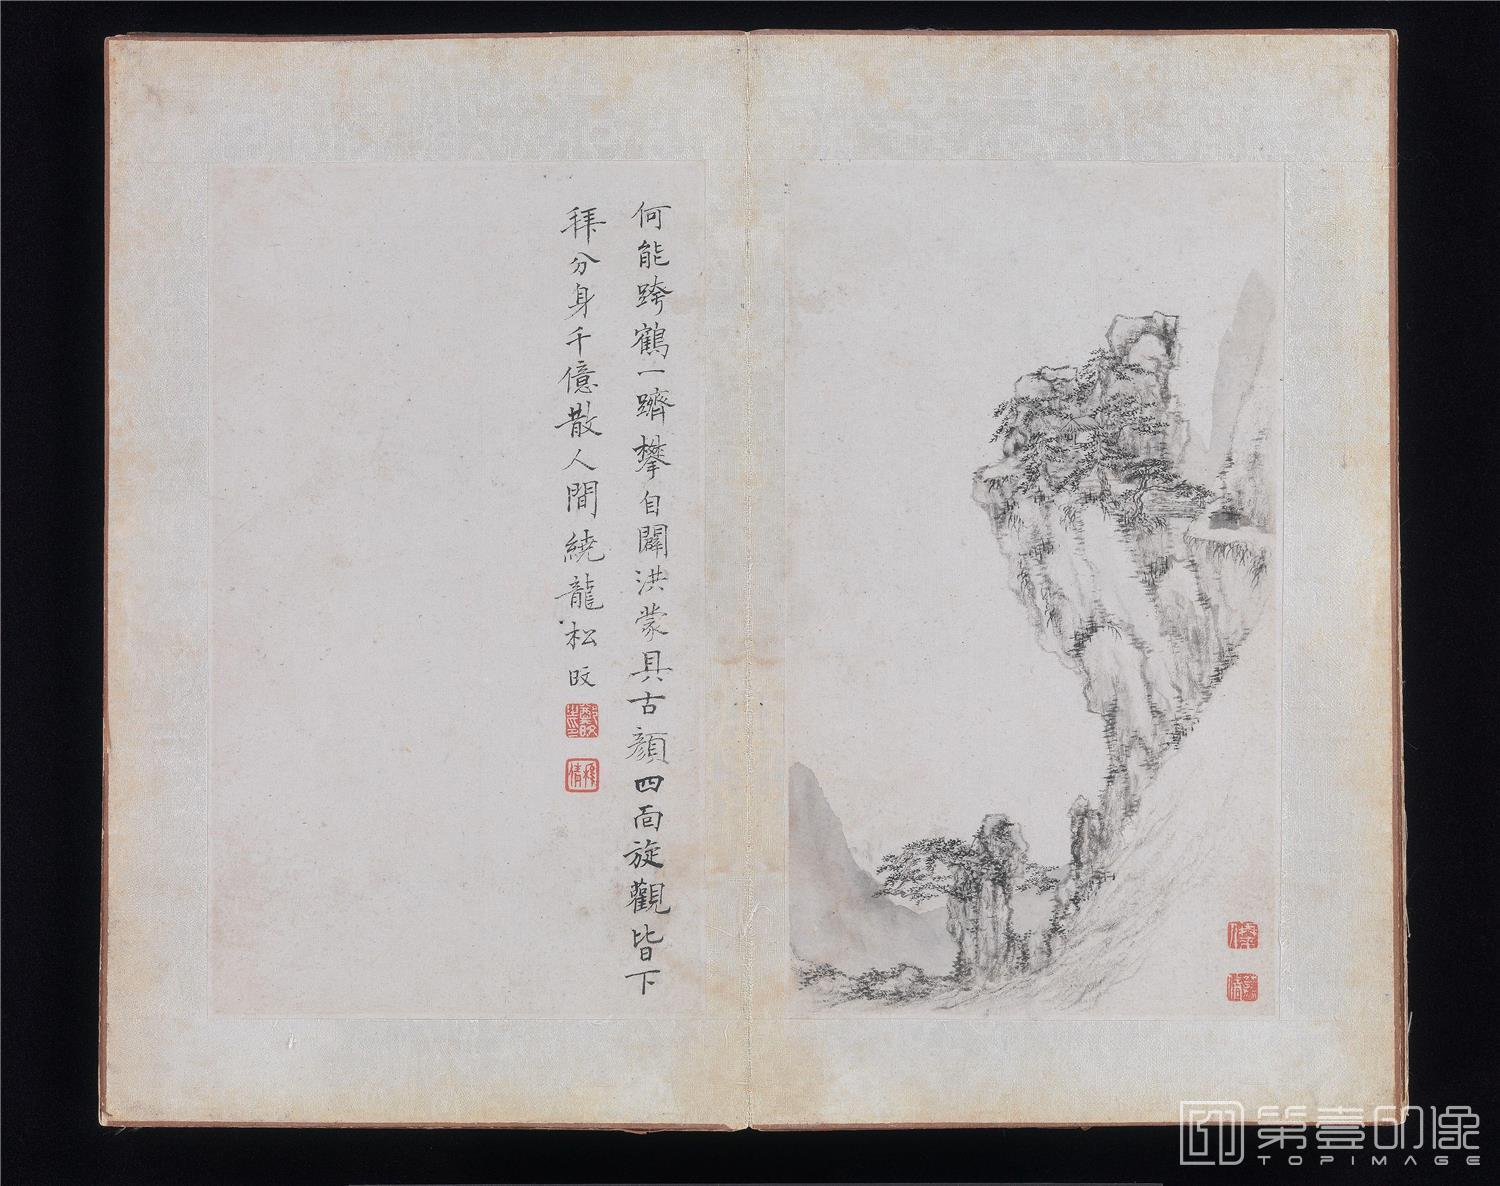 何能跨鶴一躋攀自闢洪蒙具古顏四面旋觀皆下
拜分身千億散人間繞龍松旼
鄭旼
穆倩
第壹印像
TOPIMAGE